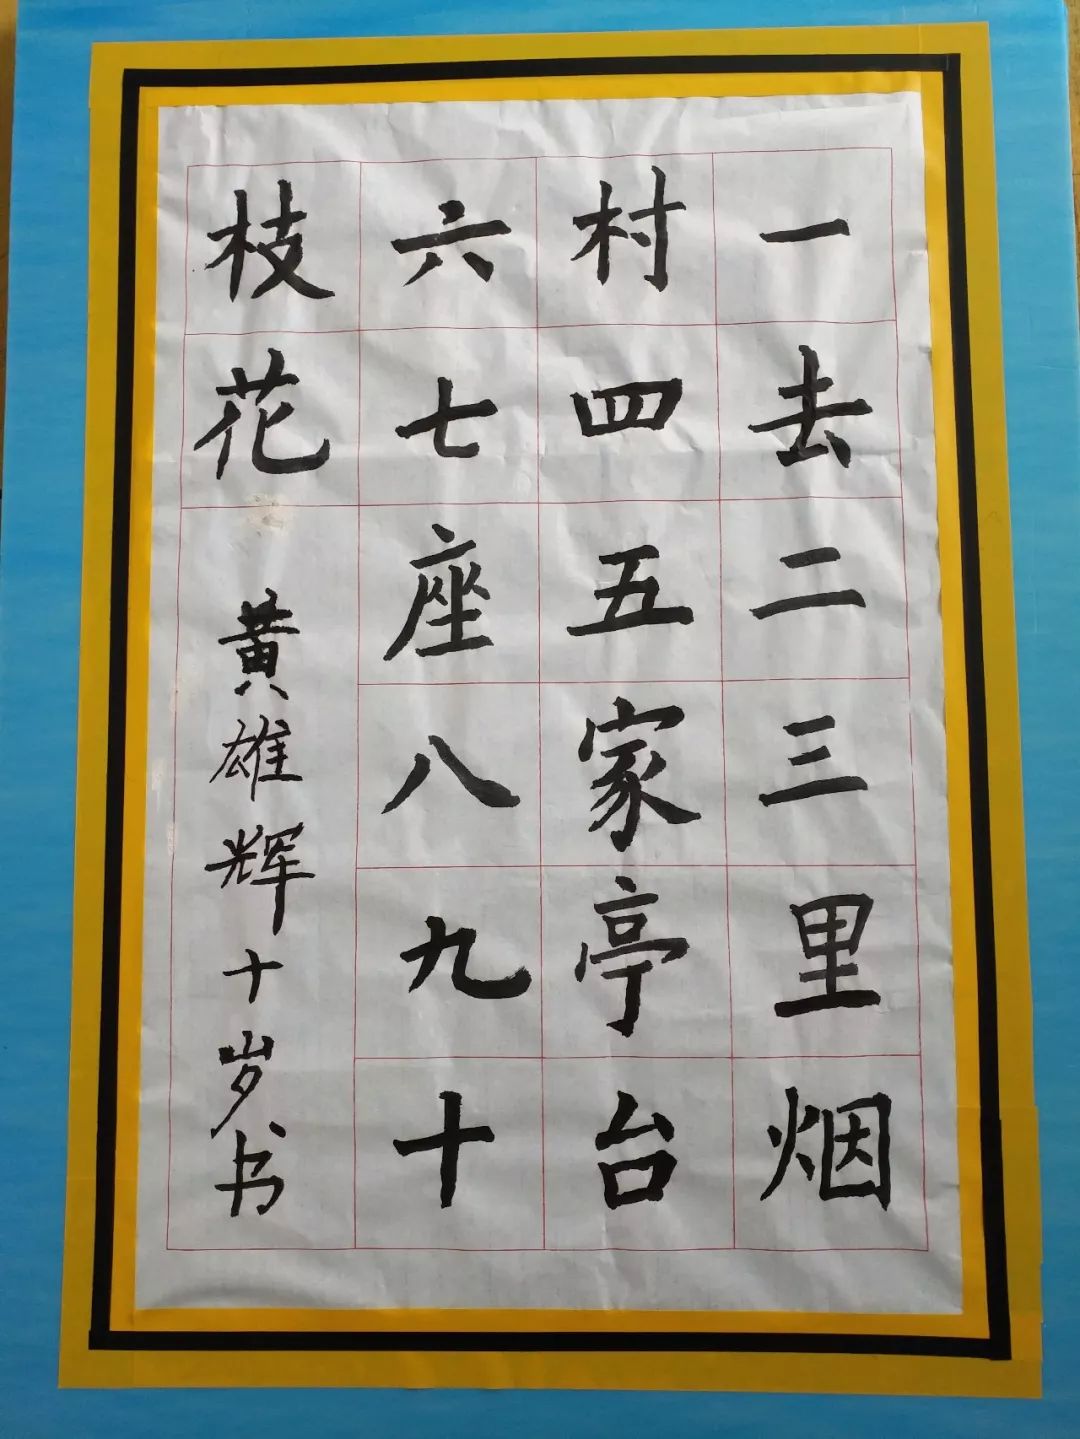 一去二三里烟
村四五家亭台
六七座八九十
枝花
黄雄辉十岁书